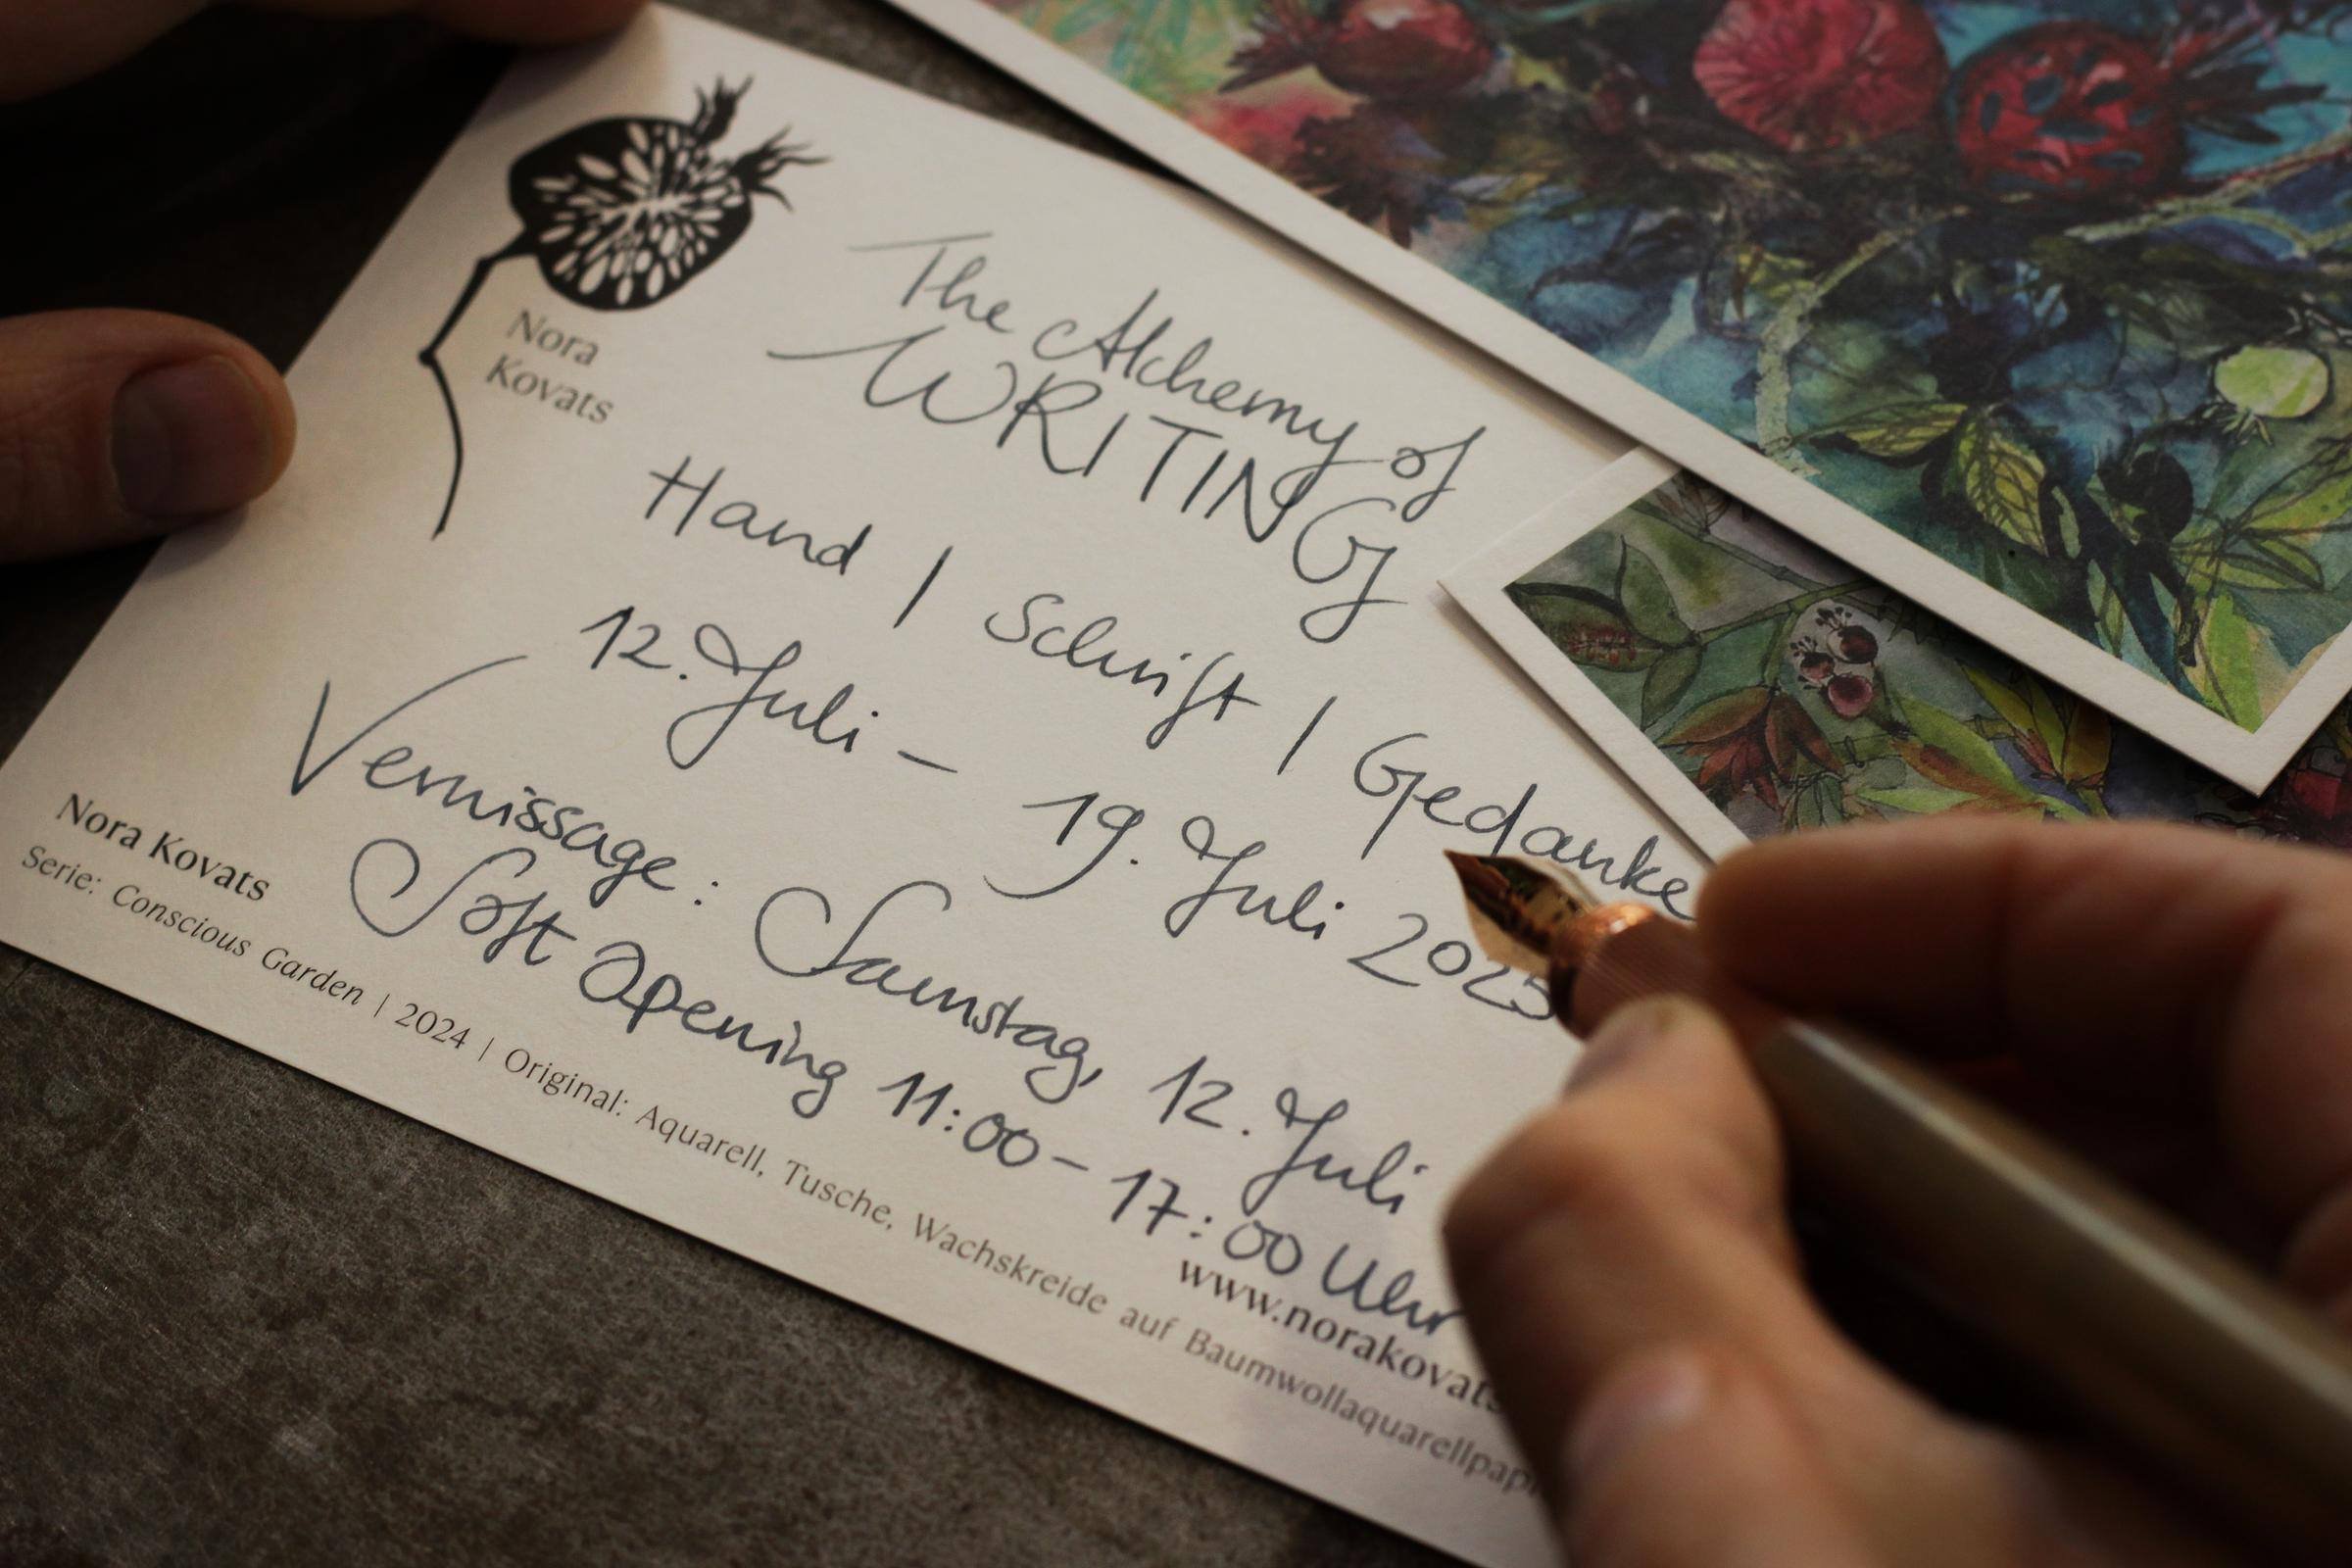 Nora
Kovats
The Alchemy of
WRITING
Hand | Schrift | Gedanke
12. Juli – 19. Juli 2025
Vernissage: Samstag, 12. Juli
Soft Opening 11:00 – 17:00 Uhr
www.norakovats
Nora Kovats
Serie: Conscious Garden | 2024 | Original: Aquarell, Tusche, Wachskreide auf Baumwollaquarellpap